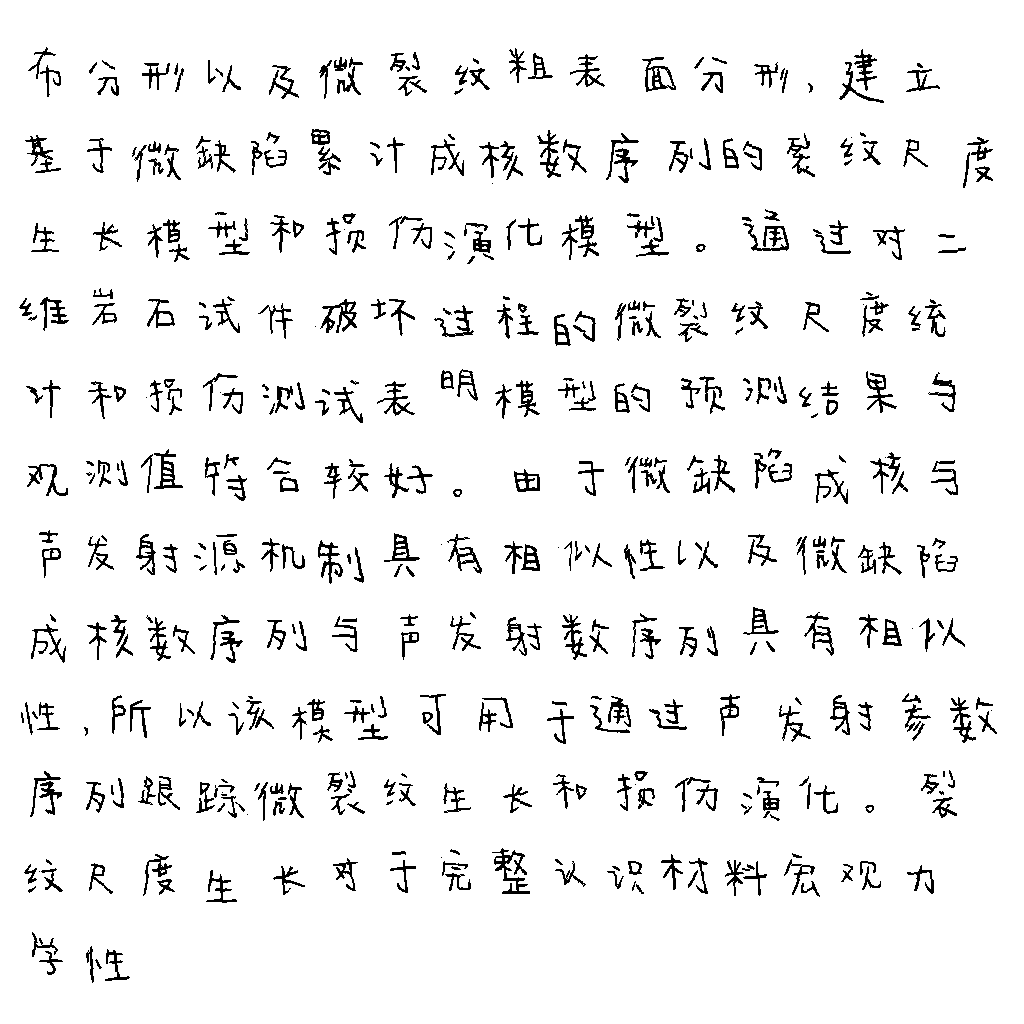 布分形以及微裂纹粗表面分形,建立
基于微缺陷累计成核数序列的裂纹尺度
生长模型和损伤演化模型。通过对二
维岩石试件破坏过程的微裂纹尺度统
计和损伤测试表明模型的预测结果与
观测值符合较好。由于微缺陷成核与
声发射源机制具有相似性以及微缺陷
成核数序列与声发射数序列具有相似
性,所以该模型可用于通过声发射参数
序列跟踪微裂纹生长和损伤演化。裂
纹尺度生长对于完整认识材料宏观力
学性